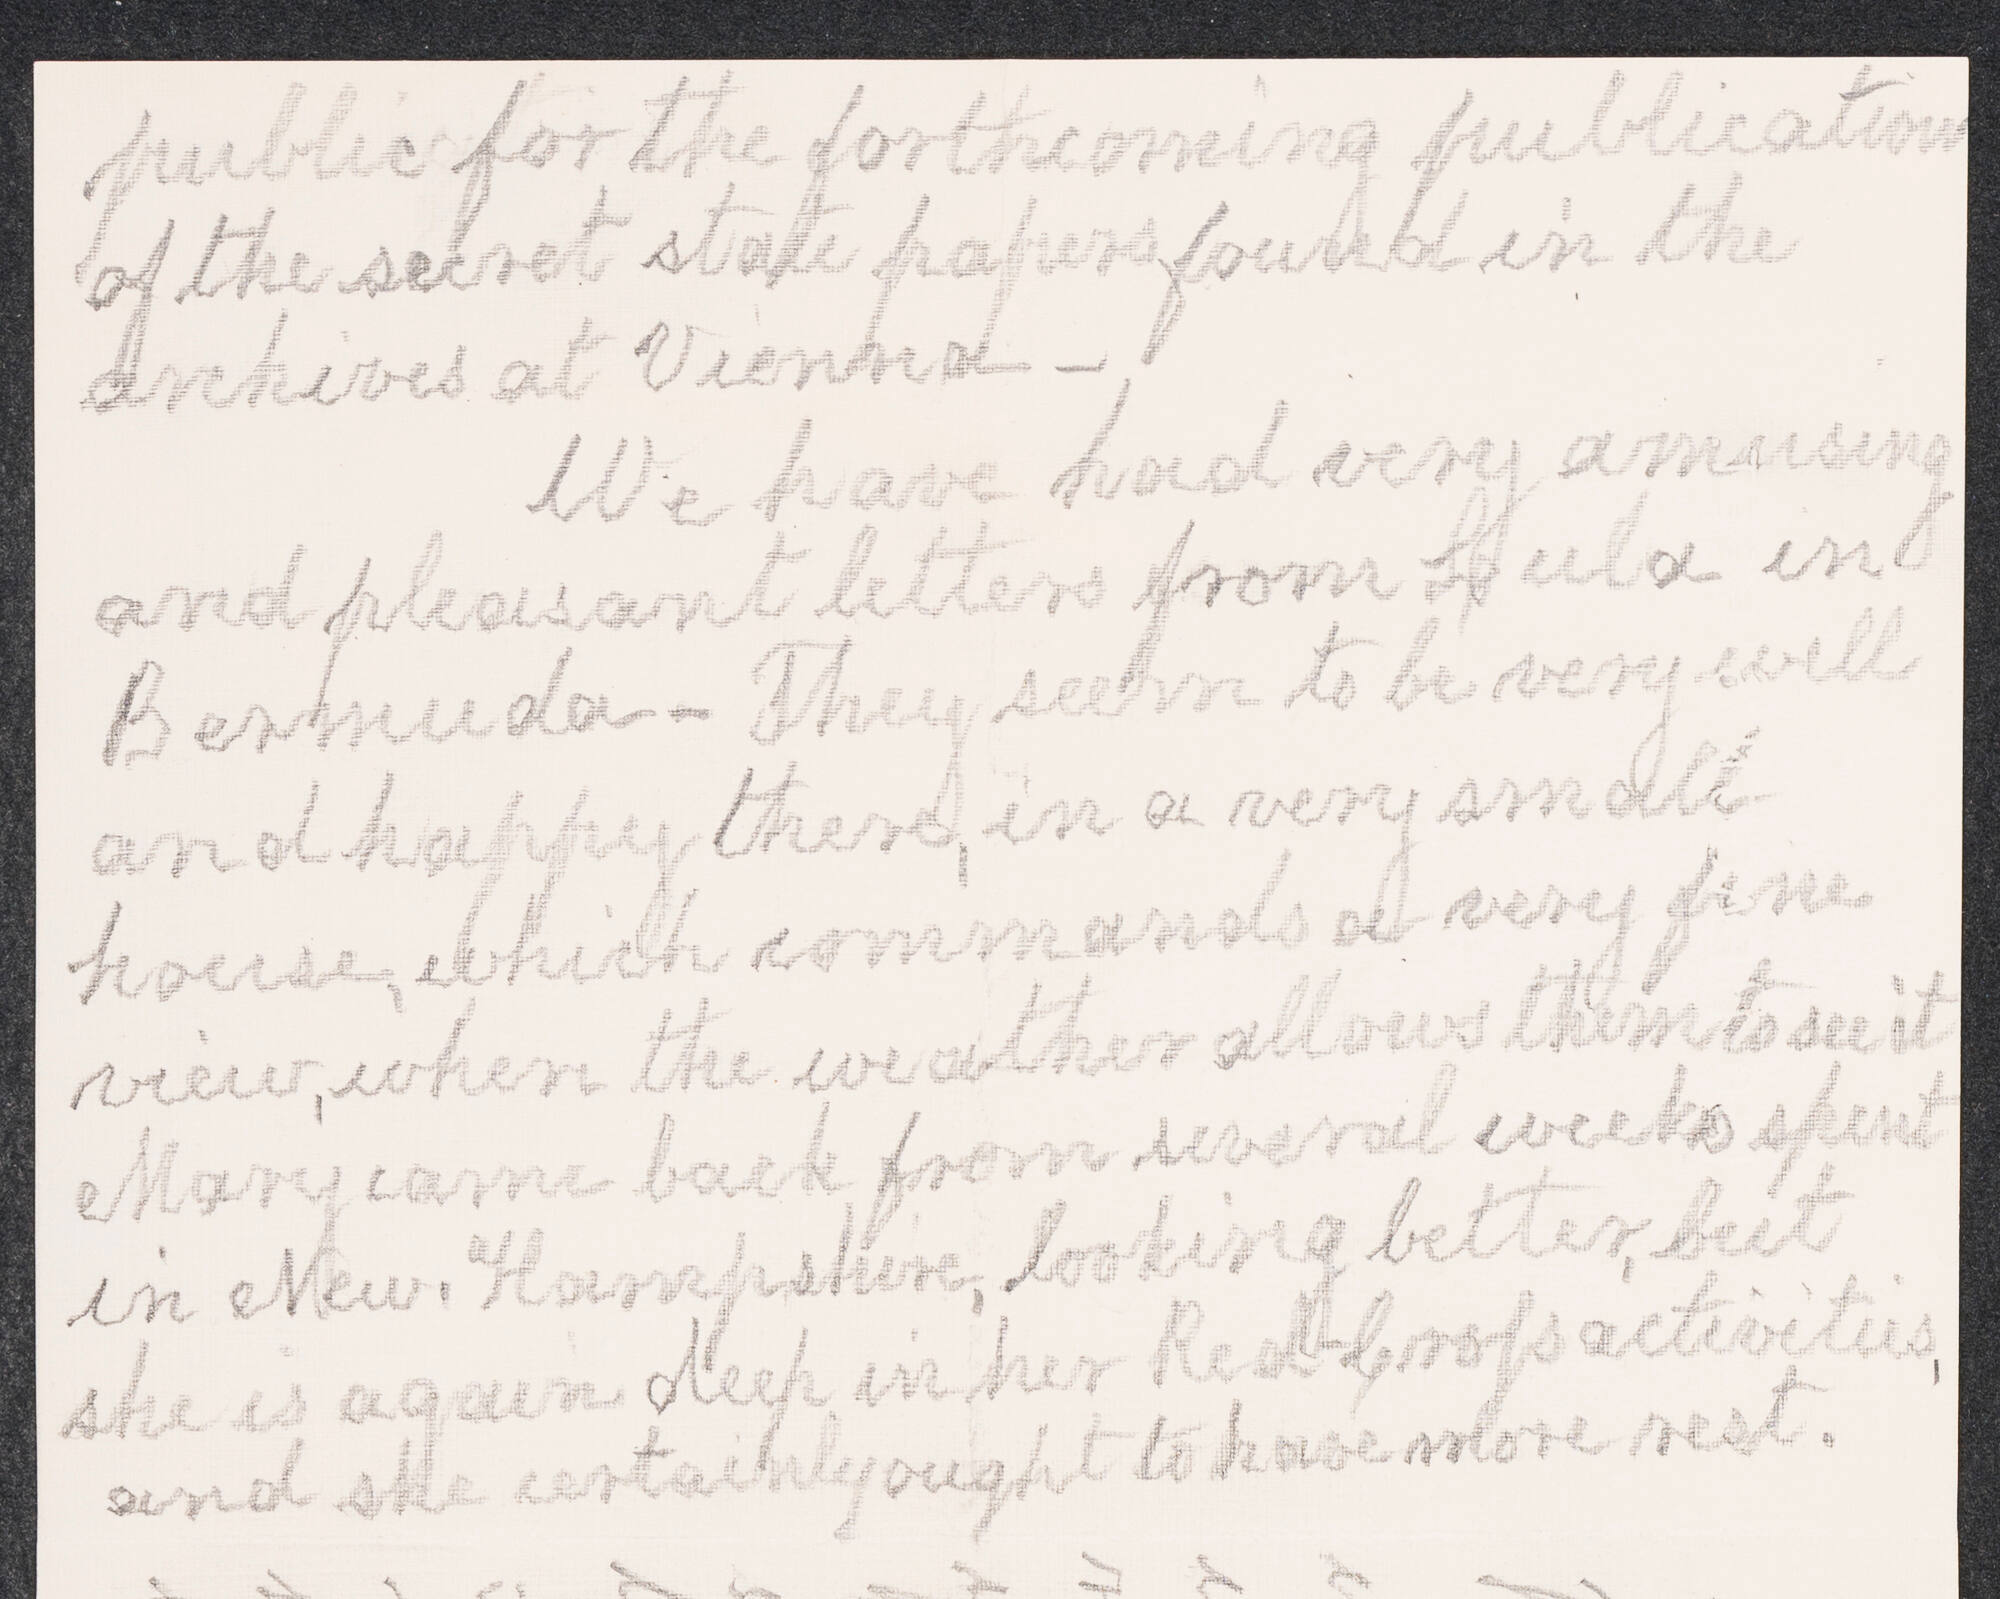 public for the forthcoming publication
of the secret state papers found in the
archives at Vienna –
We have had very amusing
and pleasant letters from Lula in
Bermuda – They seem to be very well
and happy there, in a very small
house, which commands a very fine
view, when the weather allows them to see it
Mary came back from several weeks spent
in New Hampshire, looking better, but
she is again deep in her Red-Cross activities,
and she certainly ought to have more rest.